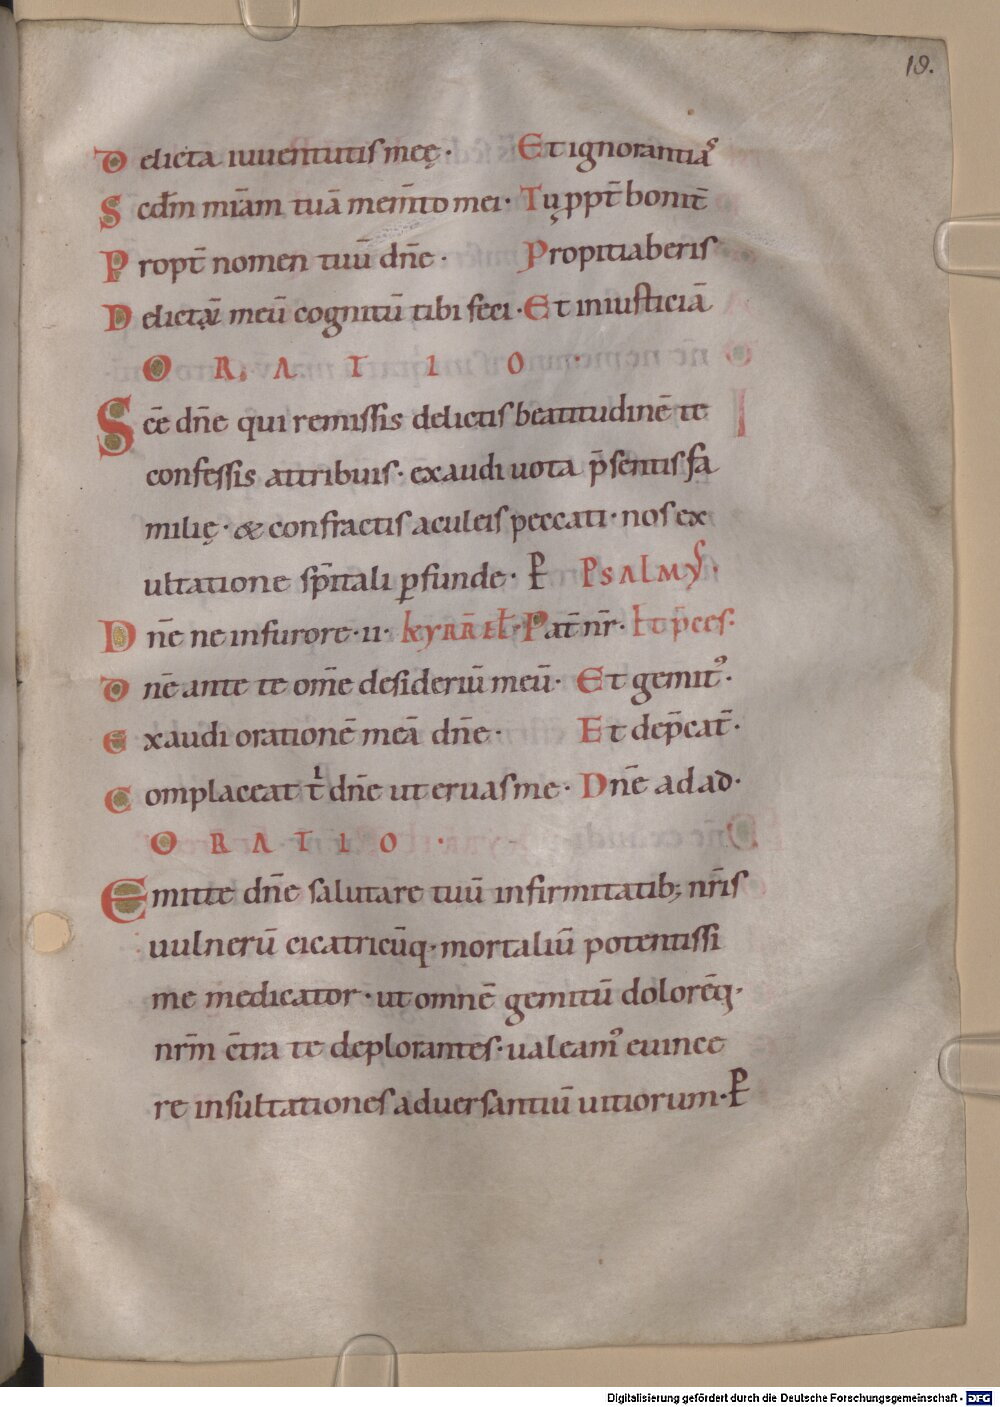 19.
Delicta iuuentutis meę · Et ignorantias
Scdm miam tuā mem̄to mei · Tu ppt̄ bonit̄
Propt̄ nomen tuū dn̄e · Propitiaberis
Delictū meū cognitū tibi feci · Et iniusticiā
ORATIO ·
Sc̄e dn̄e qui remissis delictis beatitudinē te
confessis attribuis · exaudi uota p̄sentis fa
milię · & confractis aculeis peccati · nos ex
ultatione sp̄itali ꝑfunde · P̱ Psalmus ·
Dn̄e ne in furore · II · kyrr̄ieł · Pat̄ nr̄ · Et p̄ces ·
Dn̄e ante te om̄e desideriū meū · Et gemit᾽ ·
Exaudi orationē meā dn̄e · Et dep̄cat̄ ·
Complaceat t̄ dn̄e ut eruas me · Dn̄e ad ad ·
ORATIO ·
Emitte dn̄e salutare tuū infirmitatib; nr̄is
uulnerū cicatricūq · mortaliū potentissi
me medicator · ut omnē gemitū dolorēq ·
nrm̄ c̄tra te deplorantes · ualeam᾽ euince
re insultationes aduersantiū uitiorum · P̱
Digitalisierung gefördert durch die Deutsche Forschungsgemeinschaft - DFG